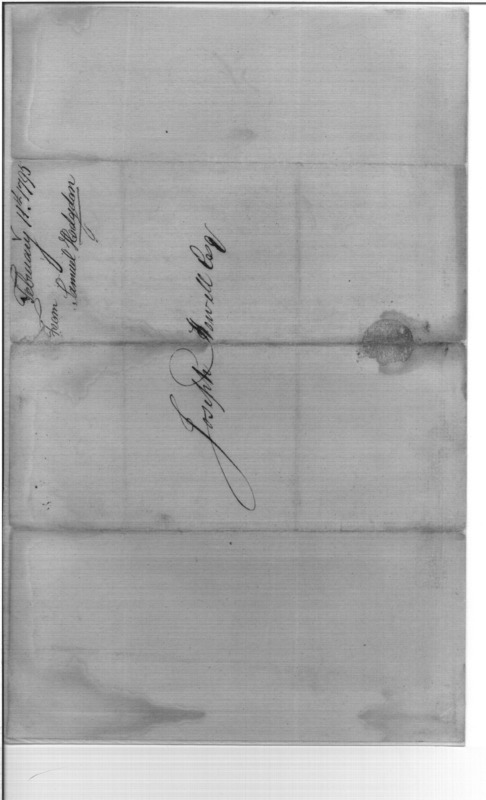 February 11th 1793
From
Samuel Hodgdon
Joseph Howell Esq